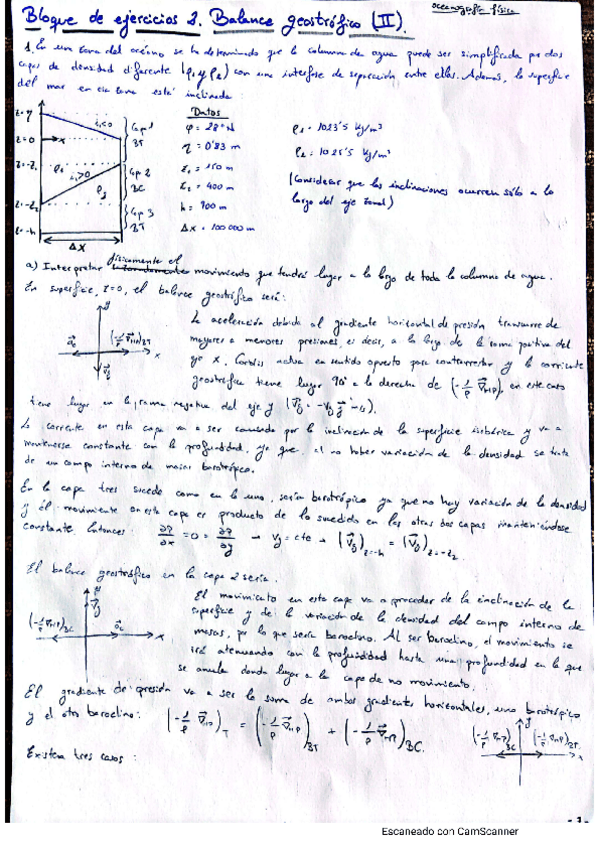 oceanografía física
Bloque de ejercicios 2. Balance geostrófico (II).
1. En una zona del océano se ha determinado que la columna de agua puede ser simplificada por dos
capas de densidad diferente (ρ₁ y ρ₂) con una interfase de separación entre ellas. Además, la superficie
del mar en esa zona está inclinada:
Datos
z=η
i₁<0
Cap 1
BT
φ = 28° N
ρ₁ = 1023'5 kg/m³
z=0
x
η = 0'83 m
ρ₂ = 1025'5 kg/m³
z=-z₁
ρ₁
i₂>0
Cap 2
BC
z₁ = 150 m
ρ₂
z₂ = 400 m
(Considerar que las inclinaciones ocurren sólo a lo
largo del eje zonal)
z=-z₂
Cap 3
BT
h = 900 m
z=-h
Δx = 100 000 m
Δx
a) Interpretar físicamente el movimiento que tendrá lugar a lo largo de toda la columna de agua.
En superficie, z=0, el balance geostrófico será:
La aceleración debida al gradiente horizontal de presión transcurre de
mayores a menores presiones, es decir, a lo largo de la rama positiva del
eje x. Coriolis actúa en sentido opuesto para contrarrestar y la corriente
geostrófica tiene lugar 90° a la derecha de (-1/ρ ∇HP), en este caso
tiene lugar en la rama negativa del eje y
La corriente en esta capa va a ser causada por la inclinación de la superficie isobárica y va a
mantenerse constante con la profundidad, ya que al no haber variación de la densidad se trata
de un campo interno de masas barotrópico.
En la capa tres sucede como en la uno, sería barotrópico ya que no hay variación de la densidad
y el movimiento en esta capa es producto de lo sucedido en las otras dos capas manteniéndose
constante. Entonces: ∂η/∂x = 0 = ∂η/∂y → Vg = cte → (Vg)z=-h = (Vg)z=-z₂
El balance geostrófico en la capa 2 sería:
El movimiento en esta capa va a proceder de la inclinación de la
superficie y de la variación de la densidad del campo interno de
masas, por lo que sería baroclino. Al ser baroclino, el movimiento se
irá atenuando con la profundidad hasta una profundidad en la que
se anula dando lugar a la capa de no movimiento.
El gradiente de presión va a ser la suma de ambos gradientes horizontales, uno barotrópico
y el otro baroclino: (-1/ρ ∇HP)T = (-1/ρ ∇HP)BT + (-1/ρ ∇HP)BC.
Existen tres casos:
-1-
Escaneado con CamScanner